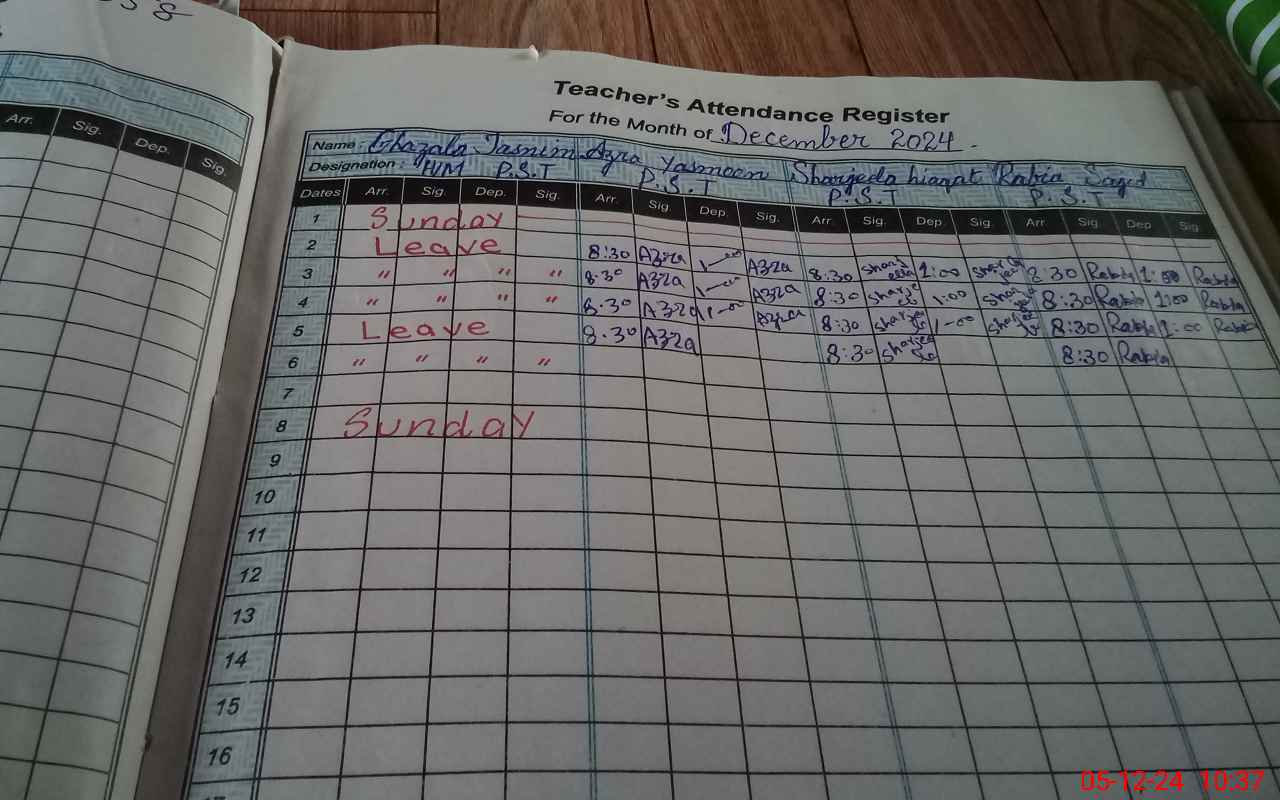 58
Arr. Sig. Dep. Sig.
Teacher's Attendance Register
For the Month of December 2024.
Name: Ghazala Tasnim Azra Yasmeen Sharjeela hiaqat Rabia Sajid
Designation: H/M P.S.T P.S.T P.S.T P.S.T
Dates Arr. Sig. Dep. Sig. Arr. Sig. Dep. Sig. Arr. Sig. Dep. Sig. Arr Sig. Dep Sig.
1 Sunday
2 Leave 8:30 Azra 1-00 Azra 8:30 1:00 8:30 Rabia 1:00 Rabia
3 " " " " 8:30 Azra 1-00 Azra 8:30 1:00 8:30 Rabia 1:00 Rabia
4 " " " " 8:30 Azra 1-00 Azra 8:30 1-00 8:30 Rabia 1:00 Rabia
5 Leave 8:30 Azra 8:30 8:30 Rabia
6 " " " "
7
8 Sunday
9
10
11
12
13
14
15
16
05-12-24 10:37